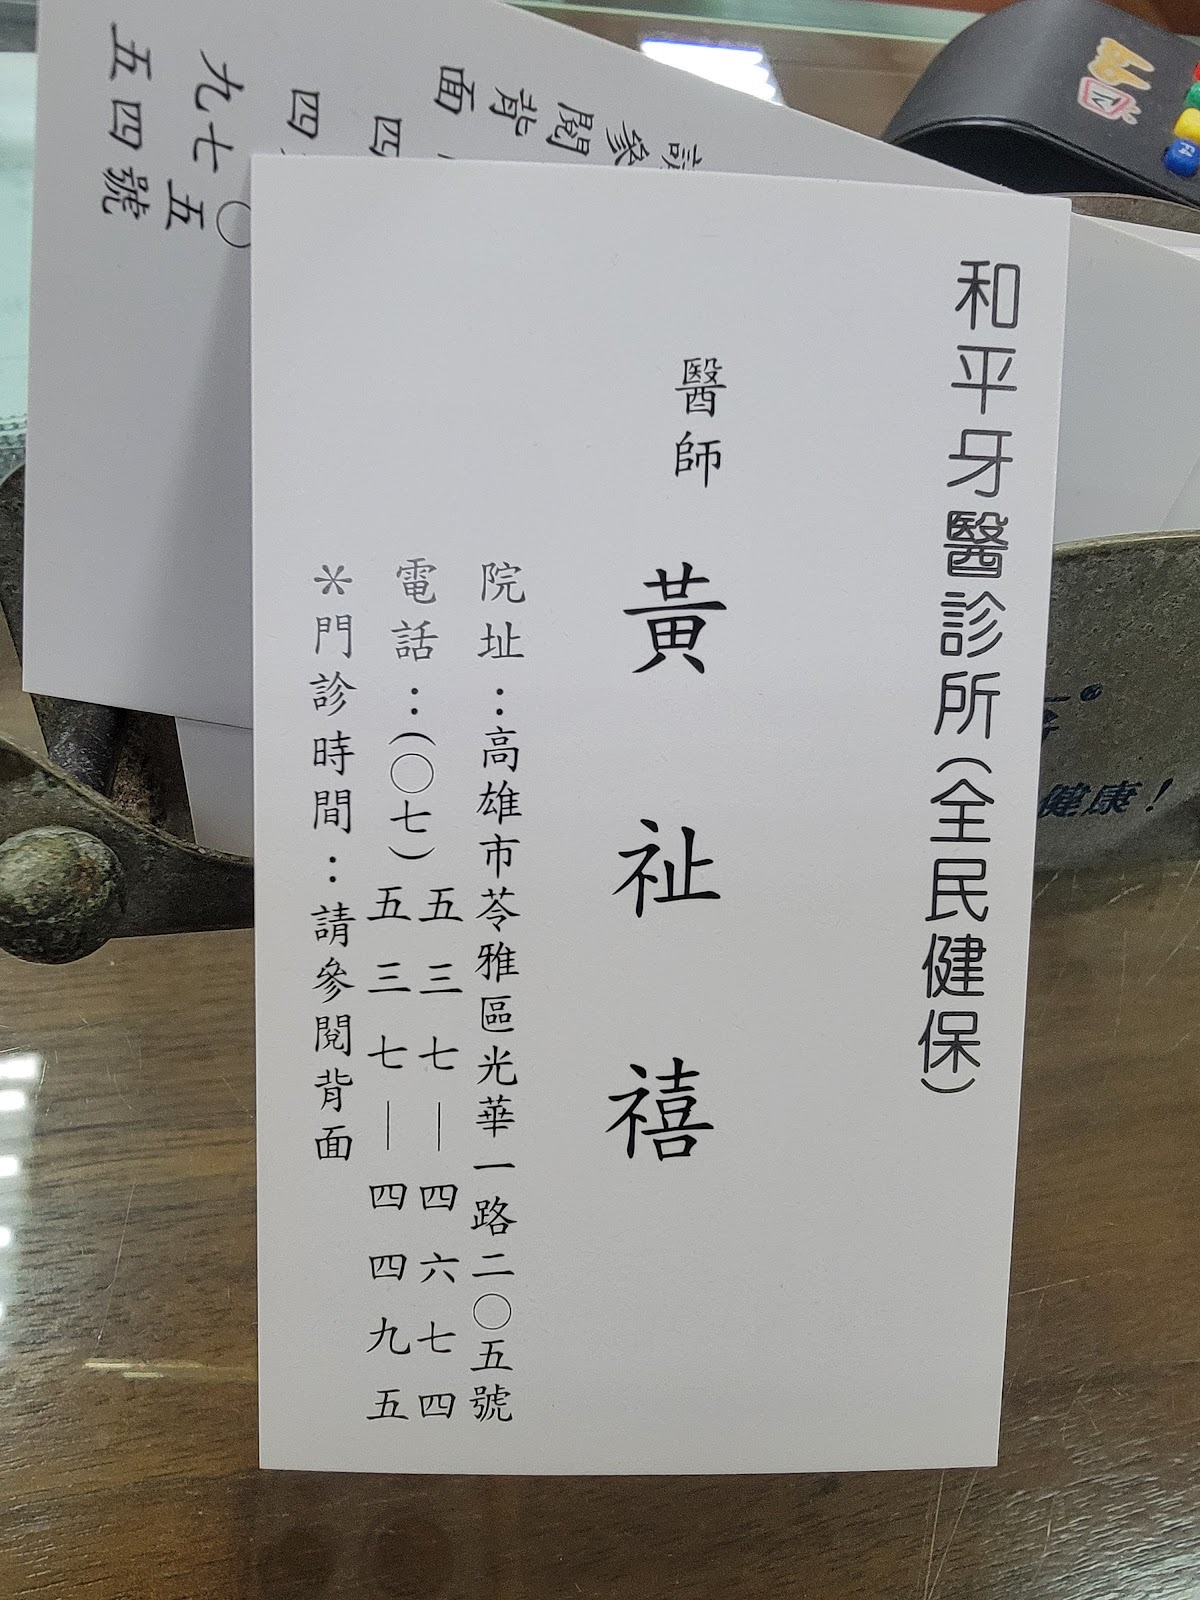 和平牙醫診所(全民健保)
醫師
黃祉禧
院址：高雄市苓雅區光華一路二〇五號
電話：(〇七)五三七—四六七四
五三七—四四九五
＊門診時間：請參閱背面
參閱背面
四
四
九七五〇
五四號
健康！
F4